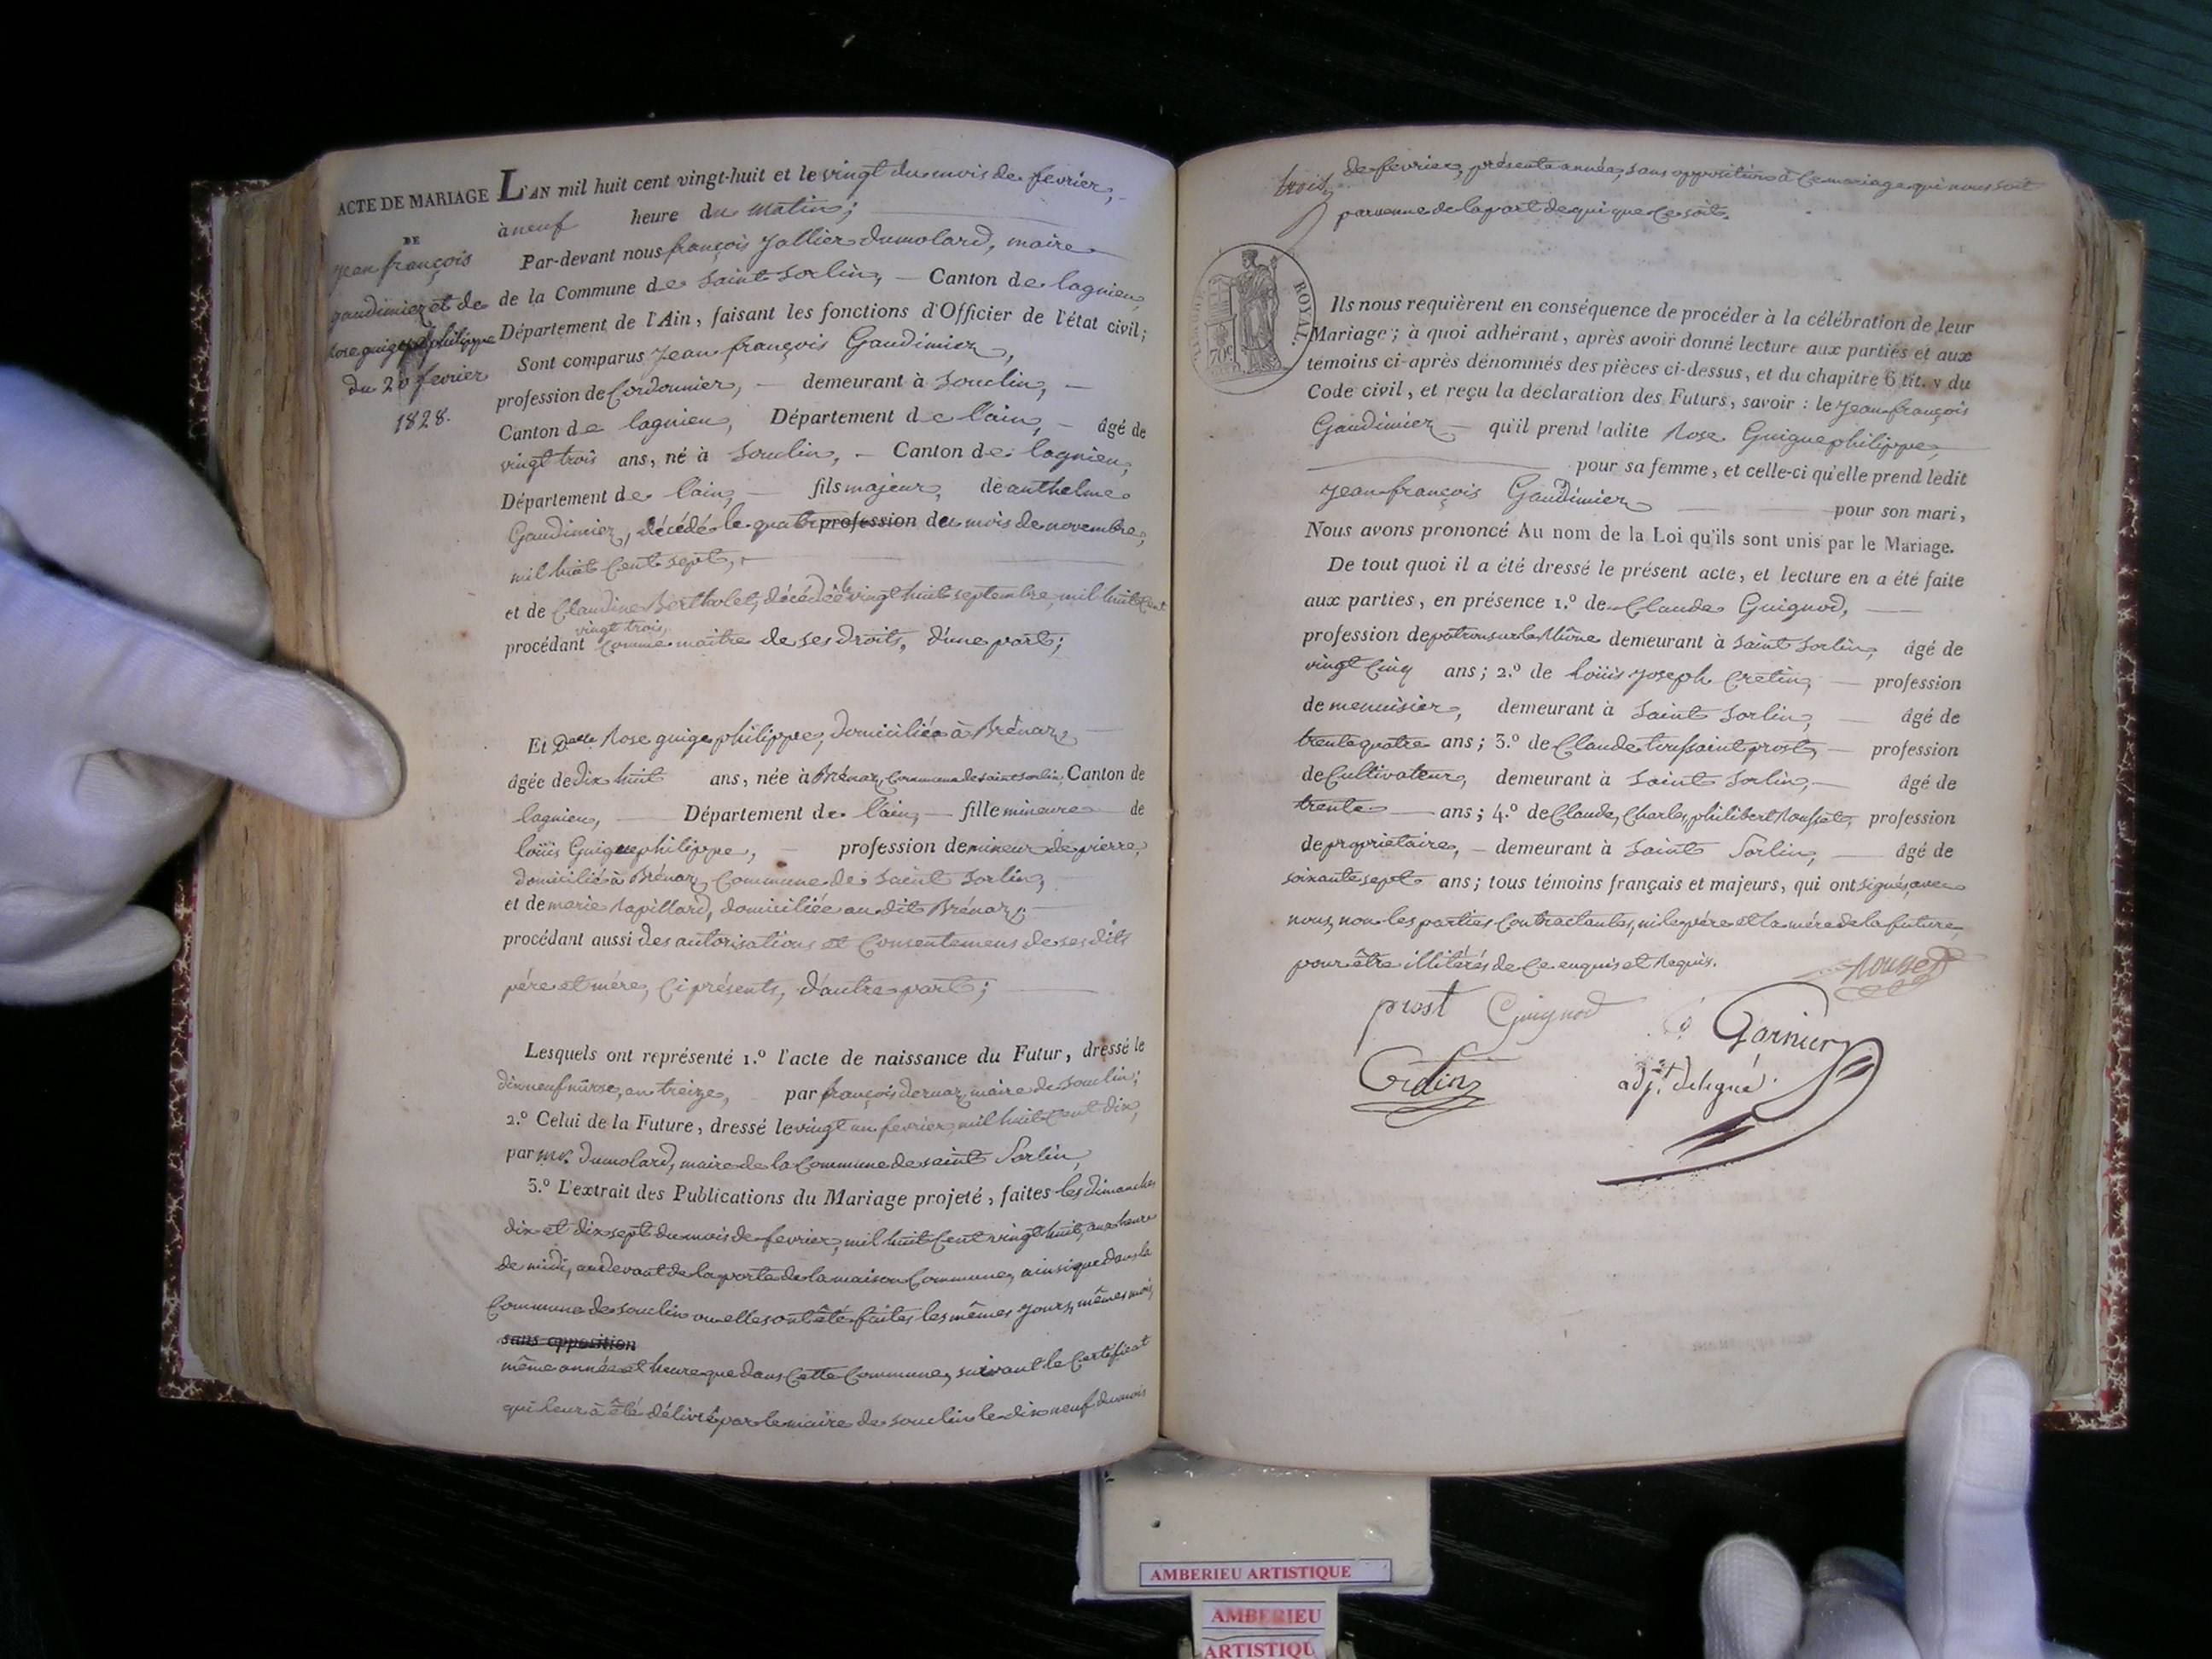 ACTE DE MARIAGE
DE
jean françois
gaudimier et de
rose guigue philippe
du 20 fevrier
1828.
L'AN mil huit cent vingt-huit et le vingt du mois de fevrier,
à neuf heure du matin;
Par-devant nous françois Jallier dumolard, maire
de la Commune de saint Sorlin, Canton de lagnieu,
Département de l'Ain, faisant les fonctions d'Officier de l'état civil;
Sont comparus jean françois Gaudimier,
profession de Cordonnier, demeurant à souclin,
Canton de lagnieu, Département de l'ain, âgé de
vingt trois ans, né à souclin, Canton de lagnieu,
Département de l'ain, fils majeur, de anthelme
Gaudimier, décédé le quatre profession du mois de novembre,
mil huit Cent sept,
et de Claudine Bertholet, décédée le vingt huit septembre, mil huit Cent
vingt trois,
procédant Comme maitre de ses droits, d'une part;
Et Delle Rose guigue philippe, domiciliée à Brénaz,
âgée de dix huit ans, née à Brénaz, Commune de saint sorlin, Canton de
lagnieu, Département de l'ain, fille mineure de
loüis Guiguephilippe, profession de mineur de pierre,
domicilié à Brénaz, Commune de saint sorlin,
et de marie Rapillard, domiciliée au dit Brénaz;
procédant aussi des autorisations et Consentemens de ses dits
pére et mére, Ci présents, d'autre part;
Lesquels ont représenté 1.º l'acte de naissance du Futur, dressé le
dix neuf nivose, an treize, par françois dernaz, maire de souclin;
2.º Celui de la Future, dressé le vingt un fevrier, mil huit Cent dix,
par mr. dumolard, maire de la Commune de saint Sorlin,
3.º L'extrait des Publications du Mariage projeté, faites les dimanches
dix et dix sept du mois de fevrier, mil huit Cent vingt huit, aux heure
de midi, au devant de la porte de la maison Commune, ainsi que dans la
Commune de souclin ou elles ont été faites les mêmes jours, mêmes mois,
sans opposition
même année et heure que dans Cette Commune, suivant le Certificat
qui leur à été délivré par le maire de souclin le dix neuf du mois
trois
de fevrier, présente année, sans opposition à Ce mariage qui nous soit
parvenue de la part de qui que Ce soit.
ROYAL.
70c
Ils nous requièrent en conséquence de procéder à la célébration de leur
Mariage; à quoi adhérant, après avoir donné lecture aux parties et aux
témoins ci-après dénommés des pièces ci-dessus, et du chapitre 6 tit. v du
Code civil, et reçu la déclaration des Futurs, savoir: le jean françois
Gaudimier qu'il prend ladite Rose Guiguephilippe,
pour sa femme, et celle-ci qu'elle prend ledit
jean françois Gaudimier pour son mari,
Nous avons prononcé Au nom de la Loi qu'ils sont unis par le Mariage.
De tout quoi il a été dressé le présent acte, et lecture en a été faite
aux parties, en présence 1.º de Claude Guignod,
profession de patron sur le Rhône demeurant à saint Sorlin, âgé de
vingt Cinq ans; 2.º de loüis joseph Cretin, profession
de menuisier, demeurant à saint Sorlin, âgé de
trente quatre ans; 3.º de Claude toussaint prost, profession
de Cultivateur, demeurant à saint Sorlin, âgé de
trente ans; 4.º de Claude, Charles, philibert Rousset, profession
de propriétaire, demeurant à saint Sorlin, âgé de
soixante sept ans; tous témoins français et majeurs, qui ont signé, avec
nous, non les parties Contractantes, ni le pére et la mére de la future,
pour être illitérés de Ce enquis et Requis.
Rousset
prost Guignod
Garnier
Cretin
adj.t délégué
AMBERIEU ARTISTIQUE
AMBERIEU
ARTISTIQU